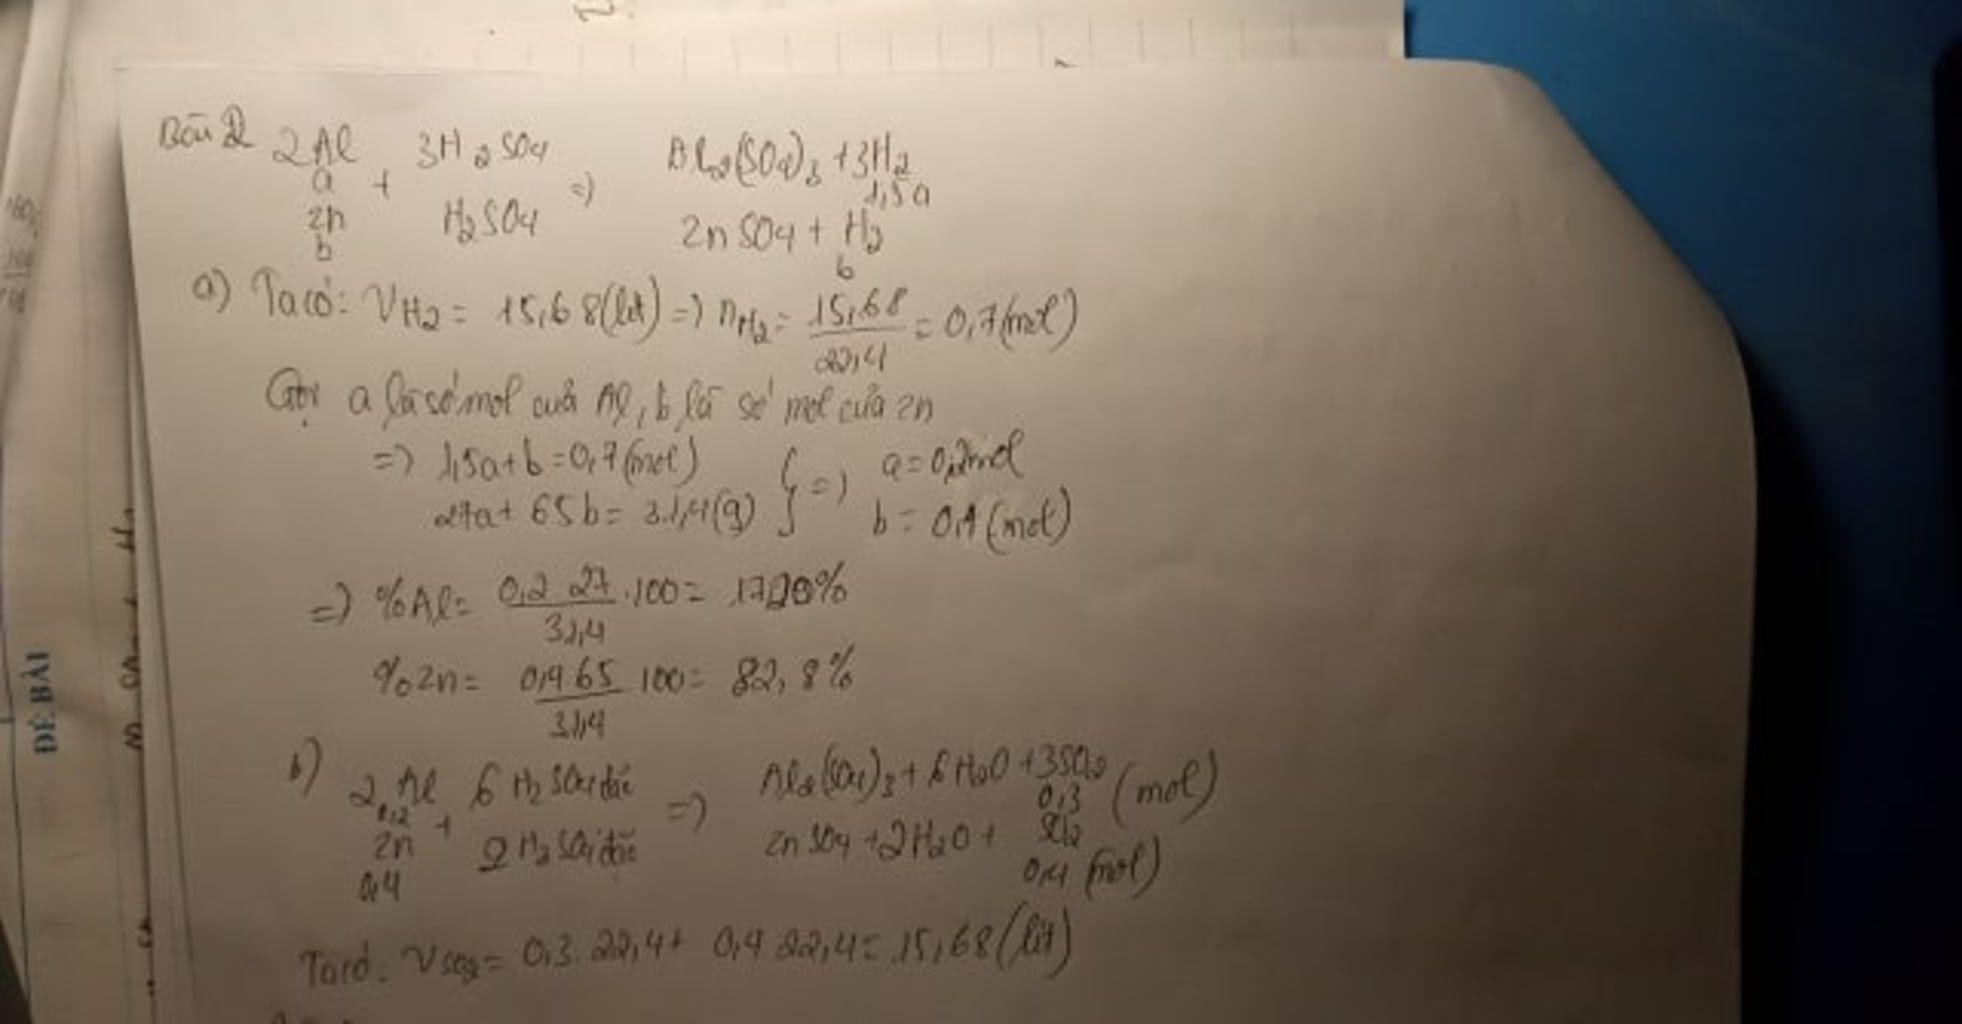 Bài 2 2Al + 3H2SO4 => Al2(SO4)3 + 3H2
a 1,5a
Zn H2SO4 ZnSO4 + H2
b b
a) Ta có: VH2 = 15,68(lít) => nH2 = 15,68/22,4 = 0,7(mol)
Gọi a là số mol của Al, b là số mol của Zn
=> 1,5a+b=0,7(mol)
27a+65b=31,4(g) } => a=0,2mol
b=0,4(mol)
=> %Al= 0,2 27/31,4 .100= 17,20%
%Zn= 0,4 65/31,4 100= 82,8%
b) 2Al + 6H2SO4 đặc => Al2(SO4)3+6H2O+3SO2
0,2 0,3 (mol)
Zn 2H2SO4 đặc ZnSO4+2H2O+ SO2
0,4 0,4 (mol)
Ta có: VSO2= 0,3.22,4+ 0,4 22,4= 15,68(lít)
ĐỀ BÀI